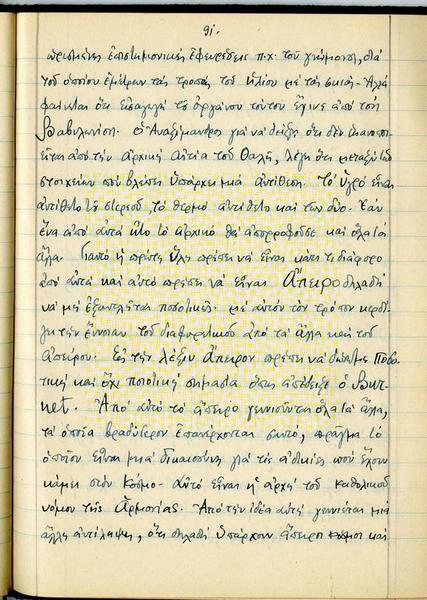 91.
ὡρισμένες ἐπιστημονικές ἐφευρέσεις π.χ. τοῦ γνώμονος, διά
τοῦ ὁποίου ἐμέτρων τάς τροπάς τοῦ ἡλίου μέ τάς σκιάς - Ἀλλά
φαίνεται ὅτι εἰσαγωγή τοῦ ὀργάνου τούτου ἔγινε ἀπό τούς
Βαβυλωνίους. Ὁ Ἀναξίμανδρος γιά νά δείξῃ ὅτι δέν
ἀπό τήν ἀρχική αἰτία τοῦ Θαλῆ, λέγει ὅτι μεταξύ τῶν
στοιχείων πού βλέπεις ὑπάρχει μιά ἀντίθεση. Τό ὑγρό εἶναι
ἀντίθετο τοῦ στερεοῦ, τό θερμό ἀντίθετο καί των δύο. Ἐάν
ἕνα ἀπό αὐτά ἦτο τό ἀρχικό θά ἀπορροφοῦσε καί ὅλα τά
ἄλλα. Γιαυτό ἡ πρώτη ὕλη πρέπει νά εἶναι κάτι τι διάφορο
ἀπό αὐτά καί αὐτό πρέπει νά εἶναι Ἄπειρο δηλαδή
νά μή ἐξαντλεῖται ποσοτικῶς. μέ αὐτόν τόν τρόπον
τήν ἔννοιαν τοῦ διαφορετικοῦ ἀπό τά ἄλλα καί τοῦ
ἀπείρου. Εἰς τήν λέξιν ἄπειρον πρέπει νά δώσωμε ποσο-
τική καί ὄχι ποιοτική σημασία ὅπως ἀπέδειξε ὁ Bur-
net. Ἀπό αὐτό τό ἄπειρο γεννιοῦνται ὅλα τά ἄλλα,
τά ὁποῖα βραδύτερον ἐπανέρχονται σαυτό, πρᾶγμα τό
ὁποῖον εἶναι μιά δικαιοσύνη γιά τίς ἀδικίες πού ἔχουν
κάμει στόν Κόσμο - αὐτό εἶναι ἡ ἀρχή τοῦ καθολικοῦ
νόμου τῆς Ἁρμονίας. Ἀπό τήν ἰδέα αὐτή γεννιέται μιά
ἄλλη ἀντίληψη, ὅτι δηλαδή ὑπάρχουν ἄπειροι κόσμοι καί